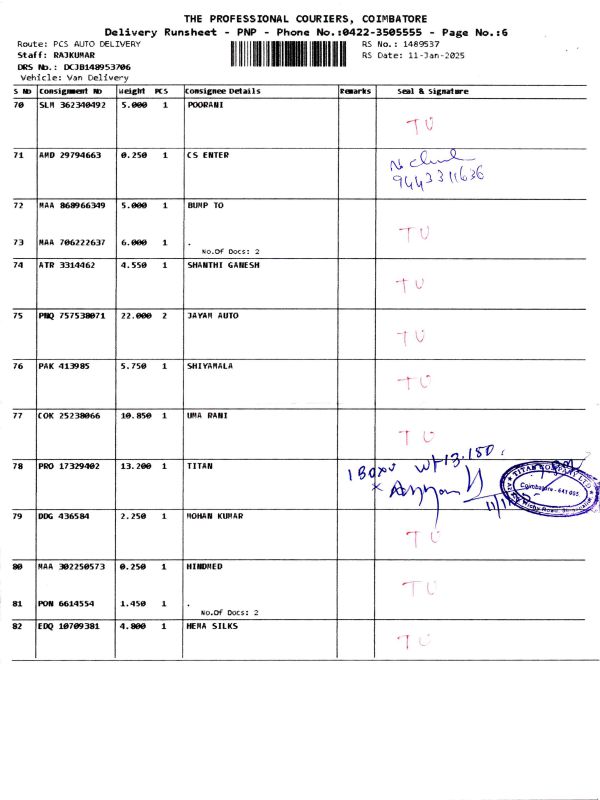 THE PROFESSIONAL COURIERS, COIMBATORE
Delivery Runsheet - PNP - Phone No.:0422-3505555 - Page No.:6
Route: PCS AUTO DELIVERY RS No.: 1489537
Staff: RAJKUMAR RS Date: 11-Jan-2025
DRS No.: DCJB148953706
Vehicle: Van Delivery
S No Consignment No Weight PCS Consignee Details Remarks Seal & Signature
70 SLM 362340492 5.000 1 POORANI
TU
71 AMD 29794663 0.250 1 CS ENTER
9443311636
72 MAA 868966349 5.000 1 BUMP TO
TU
73 MAA 706222637 6.000 1 .
No.Of Docs: 2
74 ATR 3314462 4.550 1 SHANTHI GANESH
TU
75 PNQ 757538071 22.000 2 JAYAM AUTO
TU
76 PAK 413985 5.750 1 SHIYAMALA
TU
77 COK 25238066 10.850 1 UMA RANI
TU
78 PRO 17329402 13.200 1 TITAN
1 Box wt 13.150.
TITAN COMPANY LTD
Coimbatore - 641 005
79 DDG 436584 2.250 1 MOHAN KUMAR
TU
80 MAA 302250573 0.250 1 HINDMED
TU
81 PON 6614554 1.450 1 .
No.Of Docs: 2
82 EDQ 10709381 4.800 1 HEMA SILKS
TU